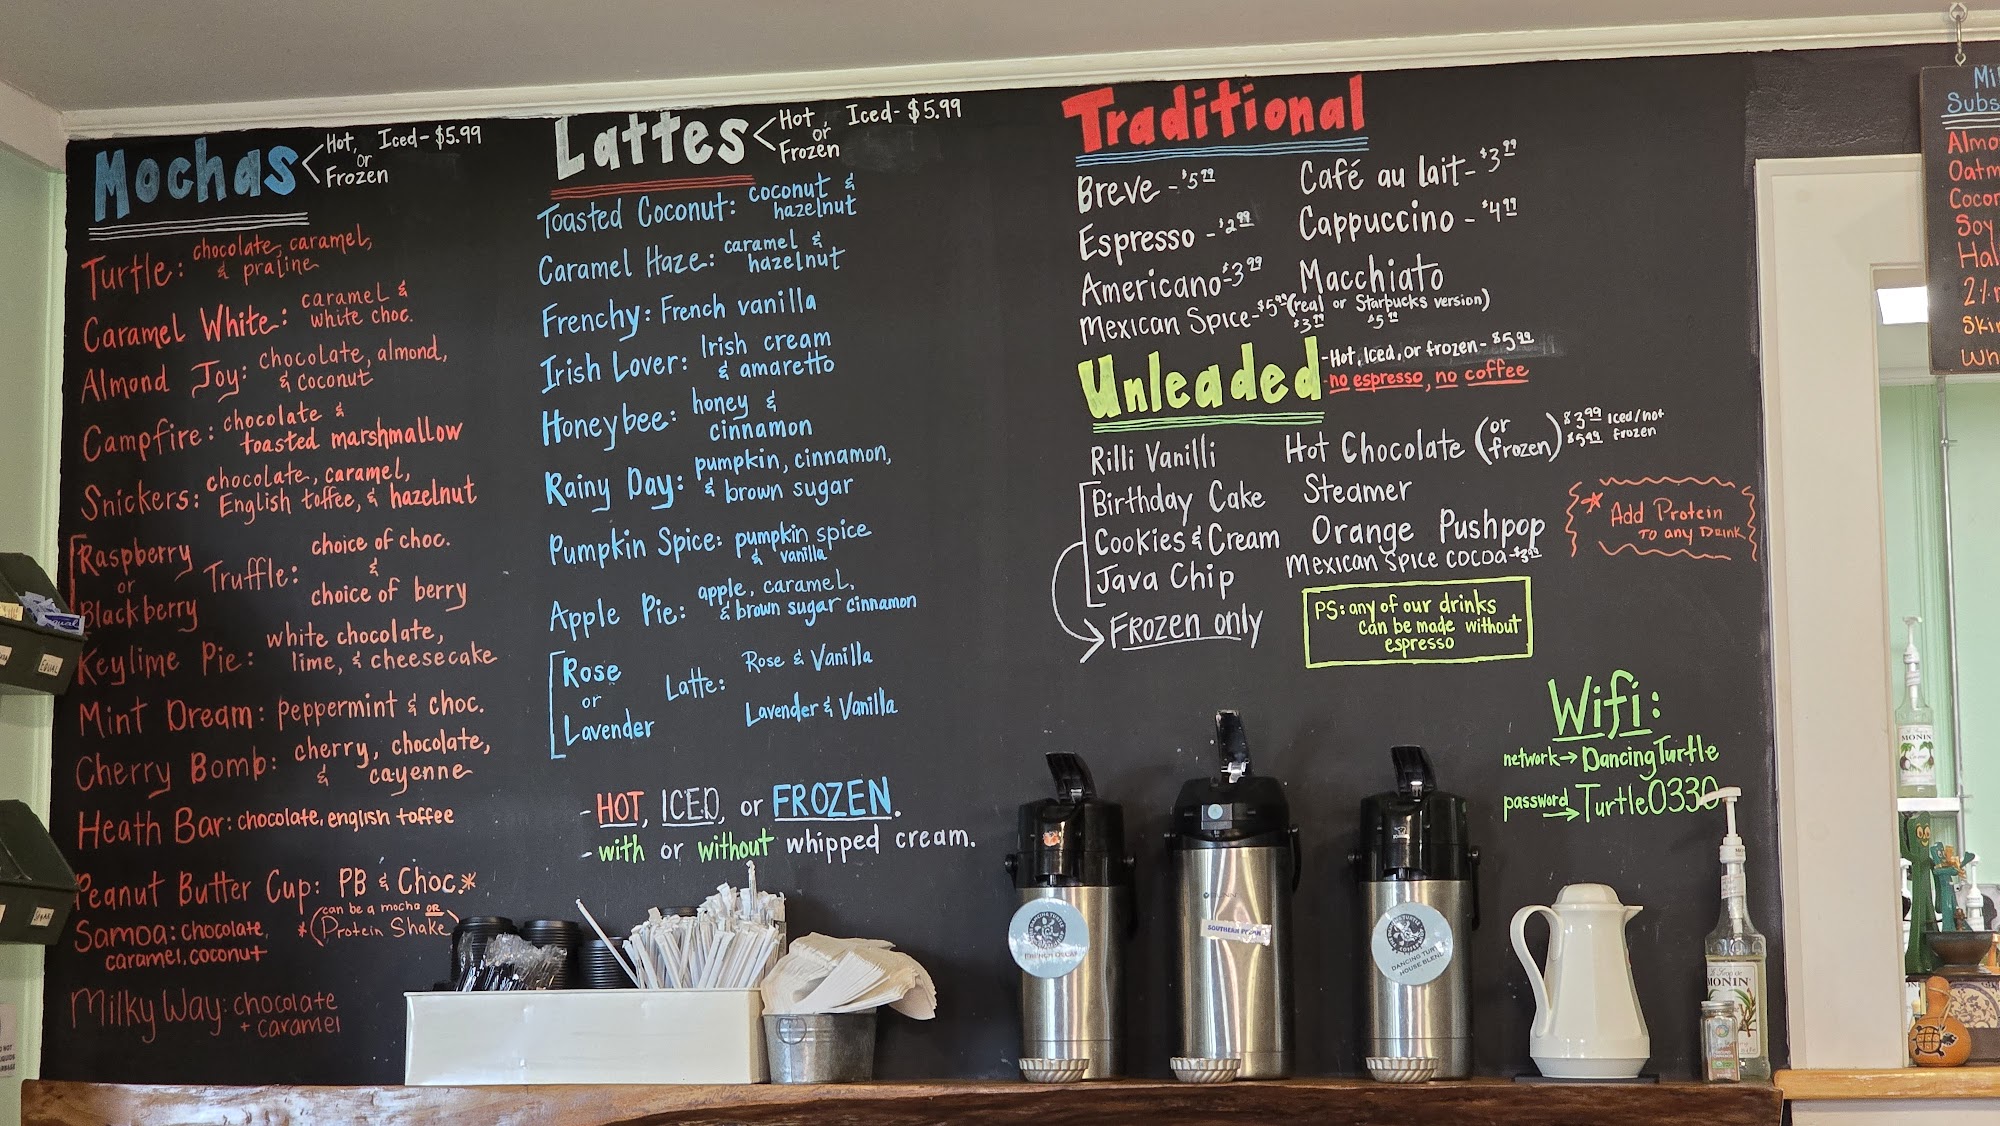 Mochas
Hot, Iced- $5.99
or
Frozen
Turtle: chocolate, caramel,
& praline
Caramel White: caramel &
white choc.
Almond Joy: chocolate, almond,
& coconut
Campfire: chocolate &
toasted marshmallow
Snickers: chocolate, caramel,
English toffee, & hazelnut
Raspberry
or
Blackberry
Truffle: choice of choc.
&
choice of berry
Keylime Pie: white chocolate,
lime, & cheesecake
Mint Dream: peppermint & choc.
Cherry Bomb: cherry, chocolate,
& cayenne
Heath Bar: chocolate, english toffee
Peanut Butter Cup: PB & Choc.*
*(can be a mocha OR
Protein Shake)
Samoa: chocolate,
caramel, coconut
Milky Way: chocolate
+ caramel
Lattes
Hot, Iced- $5.99
or
Frozen
Toasted Coconut: coconut &
hazelnut
Caramel Haze: caramel &
hazelnut
Frenchy: French vanilla
Irish Lover: Irish cream
& amaretto
Honeybee: honey &
cinnamon
Rainy Day: pumpkin, cinnamon,
& brown sugar
Pumpkin Spice: pumpkin spice
& vanilla
Apple Pie: apple, caramel,
& brown sugar cinnamon
Rose
or
Lavender
Latte: Rose & Vanilla
Lavender & Vanilla
- HOT, ICED, or FROZEN.
- with or without whipped cream.
Traditional
Breve - $5.99
Espresso - $2.99
Americano - $3.99
Mexican Spice - $5.99
Café au lait - $3.99
Cappuccino - $4.99
Macchiato
(real or Starbucks version)
$3.99 $5.99
Unleaded
- Hot, Iced, or frozen - $5.99
- no espresso, no coffee
Rilli Vanilli
Birthday Cake
Cookies & Cream
Java Chip
Frozen only
Hot Chocolate (or frozen) $3.99 Iced/hot
$5.99 frozen
Steamer
Orange Pushpop
Mexican Spice Cocoa - $3.99
* Add Protein
To any Drink
PS: any of our drinks
can be made without
espresso
Wifi:
network → DancingTurtle
password → Turtle0330
Subs
Almo
Oatm
Soy
2%
Ski
Wh
EQUAL
FRENCH DECAF
SOUTHERN
DANCING TURTLE
HOUSE BLEND
MONIN
MONIN